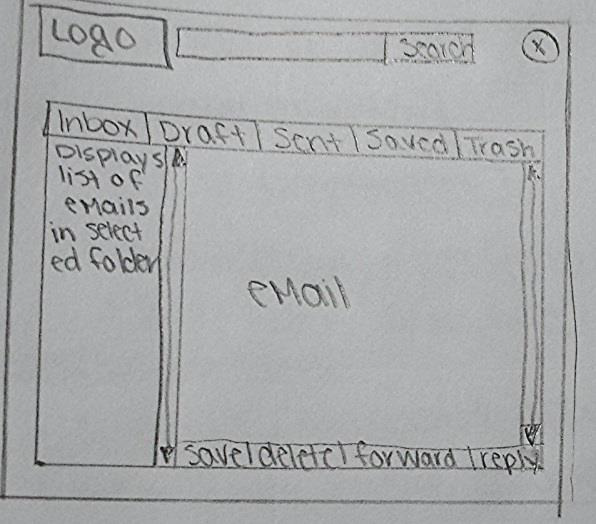 Logo
Search
X
Inbox Draft Sent Saved Trash
Displays
list of
eMails
in select
ed folder
eMail
save delete forward reply